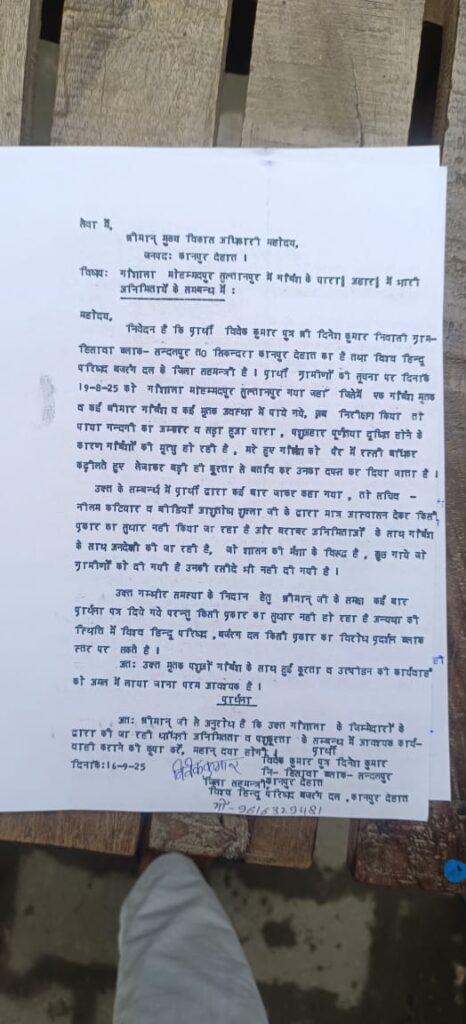 सेवा में,
श्रीमान् मुख्य विकास अधिकारी महोदय,
जनपद: कानपुर देहात ।
विषय: गौशाला मोहम्मदपुर सुल्तानपुर में गोवंश के चारा। अहार। में भारी
अनिमितायें के सम्बन्ध में :
महोदय,
निवेदन है कि प्रार्थी विवेक कुमार पुत्र श्री दिनेश कुमार निवासी ग्राम-
हिसावा ब्लाक- सन्दलपुर त0 सिकन्दरा कानपुर देहात का है तथा विश्व हिन्दू
परिषद बजरंग दल के जिला सहमन्त्री है । प्रार्थी ग्रामीणों की सूचना पर दिनांक
19-8-25 को गौशाला मोहम्मदपुर सुल्तानपुर गया जहाँ जिसेमें एक गोवंश मृतक
व कई बीमार गोवंश व कई मृतक अवस्था में पाये गये, जब निरीक्षण किया तो
पाया गन्दगी का अम्बार व सड़ा हुआ चारा , पशुआहार पूर्णतया दूषित होने के
कारण गोवंशों की मृत्यु हो रही है , मरे हुए गोवंश को पैर में रस्सी बांधकर
कढ़ीलते हुए लेजाकर बड़ी ही क्रूरता से बर्ताव कर उनका दफ्न कर दिया जाता है ।
उक्त के सम्बन्ध में प्रार्थी द्वारा कई बार जाकर कहा गया , तो सचिव -
नीलम कटियार व बीडियों आशुतोष शुक्ला जी के द्वारा मात्र आश्वासन देकर किसी
प्रकार का सुधार नही किया जा रहा है और बराबर अनिमितताओं के साथ गोवंश
के साथ अनदेखी की जा रही है, जो शासन की मंशा के विरूद्ध है , कुछ गाये जो
ग्रामीणों को दी गयी है उनकी रसीदे भी नही दी गयी है ।
उक्त गम्भीर समस्या के निदान हेतु श्रीमान जी के समक्ष कई बार
प्रार्थना पत्र दिये गये परन्तु किसी प्रकार का सुधार नही हो रहा है अन्यथा की
स्थिति में विश्व हिन्दू परिषद , बजरंग दल किसी प्रकार का विरोध प्रदर्शन ब्लाक
स्तर पर सकते है ।
अत: उक्त मृतक पशुओं गोवंश के साथ हुई क्रूरता व उत्पीडन की कार्यवाही
को अमल में लाया जाना परम आवश्यक है ।
प्रार्थना
अत: श्रीमान् जी से अनुरोध है कि उक्त गौशाला के जिम्मेदारों के
द्वारा की जा रही धांधली अनिमितता व पशुक्रूरता के सम्बन्ध में आवश्यक कार्य-
वाही कराने की कृपा करें, महान् दया होगी । प्रार्थी
विवेक कुमार पुत्र दिनेश कुमार
दिनांक:16-9-25 विवेक कुमार नि- हिसावा ब्लाक- सन्दलपुर
जिला सहमन्त्री कानपुर देहात
विश्व हिन्दू परिषद बजरंग दल ,कानपुर देहात
मो-9616329481